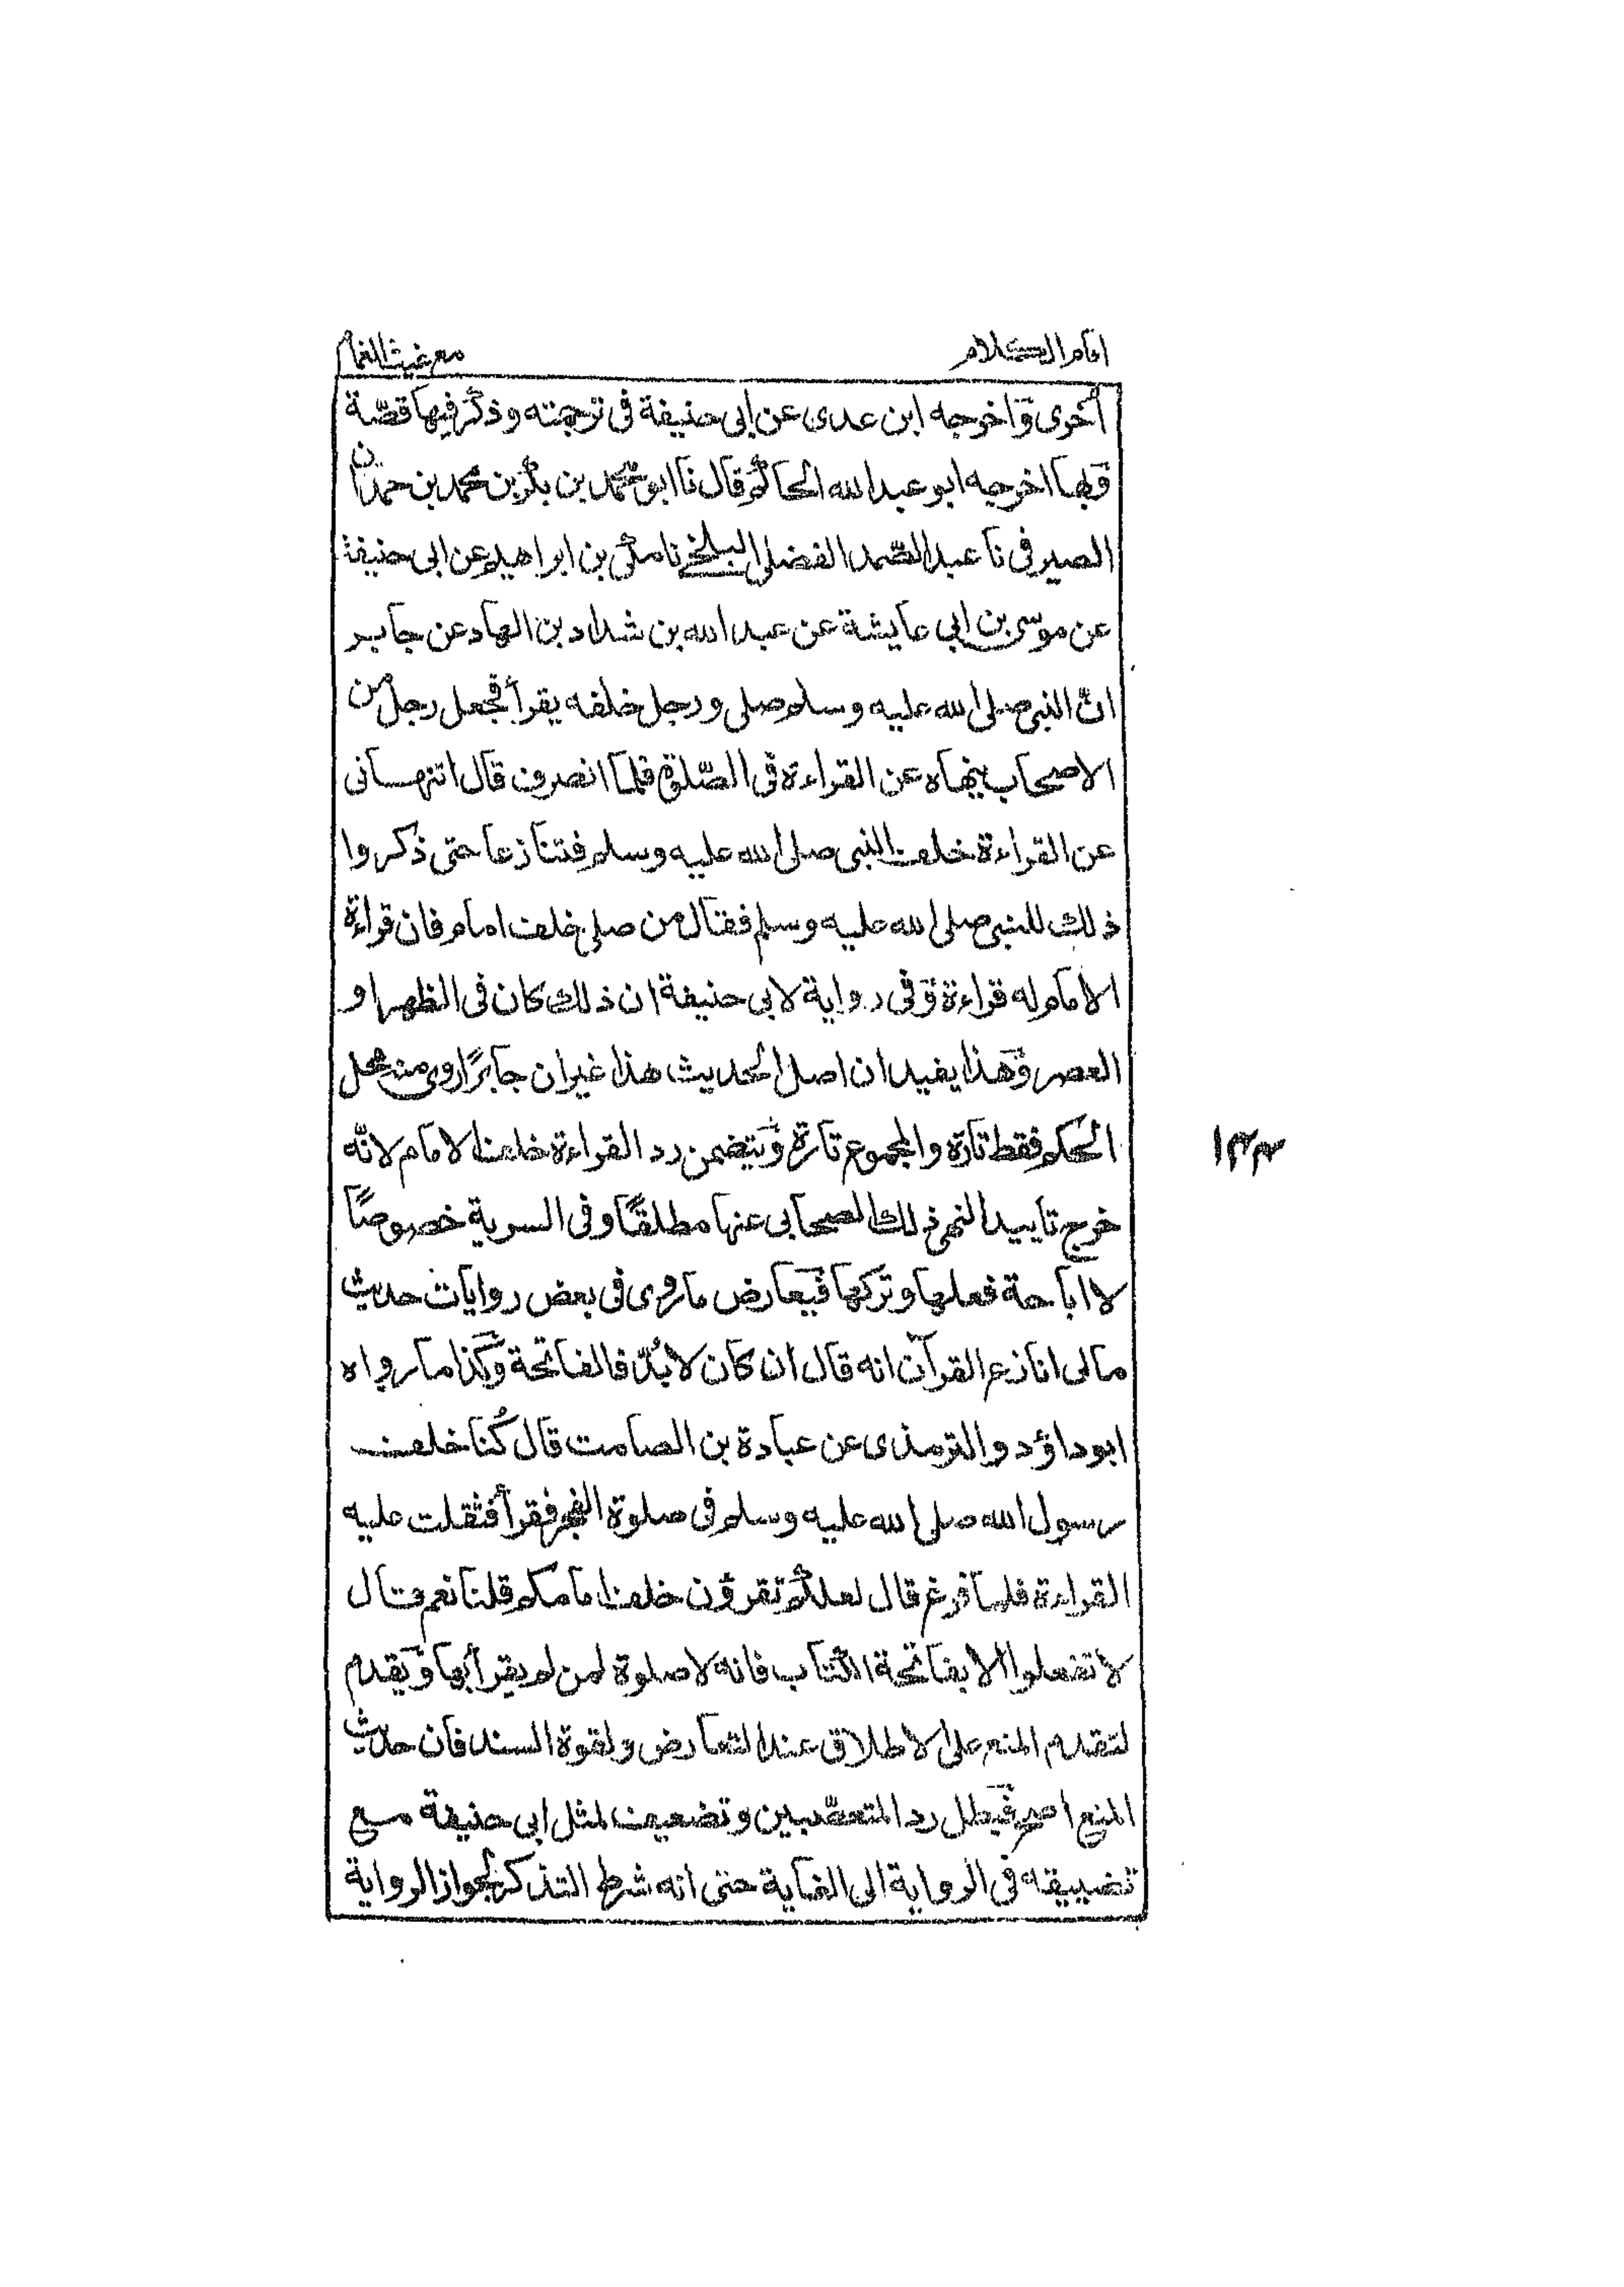 امام الكلام
مع غيث الغمام
أخرى واخرجه ابن عدى عن ابى حنيفة فى ترجمته وذكر فيها قصّة
وبها اخرجه ابو عبد الله الحاكم قال نا ابو محمد بن بكر بن محمد بن حمدان
الصيرفى نا عبد الصّمد الفضلى البلخى نا مكى بن ابراهيم عن ابى حنيفة
عن موسى بن ابى عايشة عن عبد الله بن شداد بن الهاد عن جابر
انّ النبى صلى الله عليه وسلم صلى ورجل خلفه يقرأ فجعل رجل من
الاصحاب ينهاه عن القراءة فى الصّلوة فلما انصرف قال اتنهانى
عن القراءة خلف النبى صلى الله عليه وسلم فتنازعا حتى ذكروا
ذلك للنبى صلى الله عليه وسلم فقال من صلى خلف امام فان قراءة
الامام له قراءة وفى رواية لابى حنيفة ان ذلك كان فى الظهر او
العصر وهذا يفيد ان اصل الحديث هذا غير ان جابرًا روى منه محل
الحكم فقط تارة والمجموع تارة ويتضمن رد القراءة خلف الامام لانّه
خرج تاييد النهى ذلك الصحابى عنها مطلقًا وفى السرية خصوصًا
لا اباحة فعلها وتركها فيعارض ما روى فى بعض روايات حديث
مالى انازع القرآن انه قال ان كان لا بُدّ فالفاتحة وكذا ما رواه
ابو داؤد والترمذى عن عبادة بن الصامت قال كُنا خلف
رسول الله صلى الله عليه وسلم فى صلوة الفجر فقرأ فثقلت عليه
القراءة فلما فرغ قال لعلكم تقرؤن خلف امامكم قلنا نعم قال
لا تفعلوا الا بفاتحة الكتاب فانه لا صلوة لمن لم يقرأ بها ويقدم
لتقدم المنع على الاطلاق عند التعارض ولقوة السند فان حديث
المنع اصح فيطل رد المتعصّبين وتضعيف لمثل ابى حنيفة مع
تضييقه فى الرواية الى الغاية حتى انه شرط التذكر لجواز الرواية